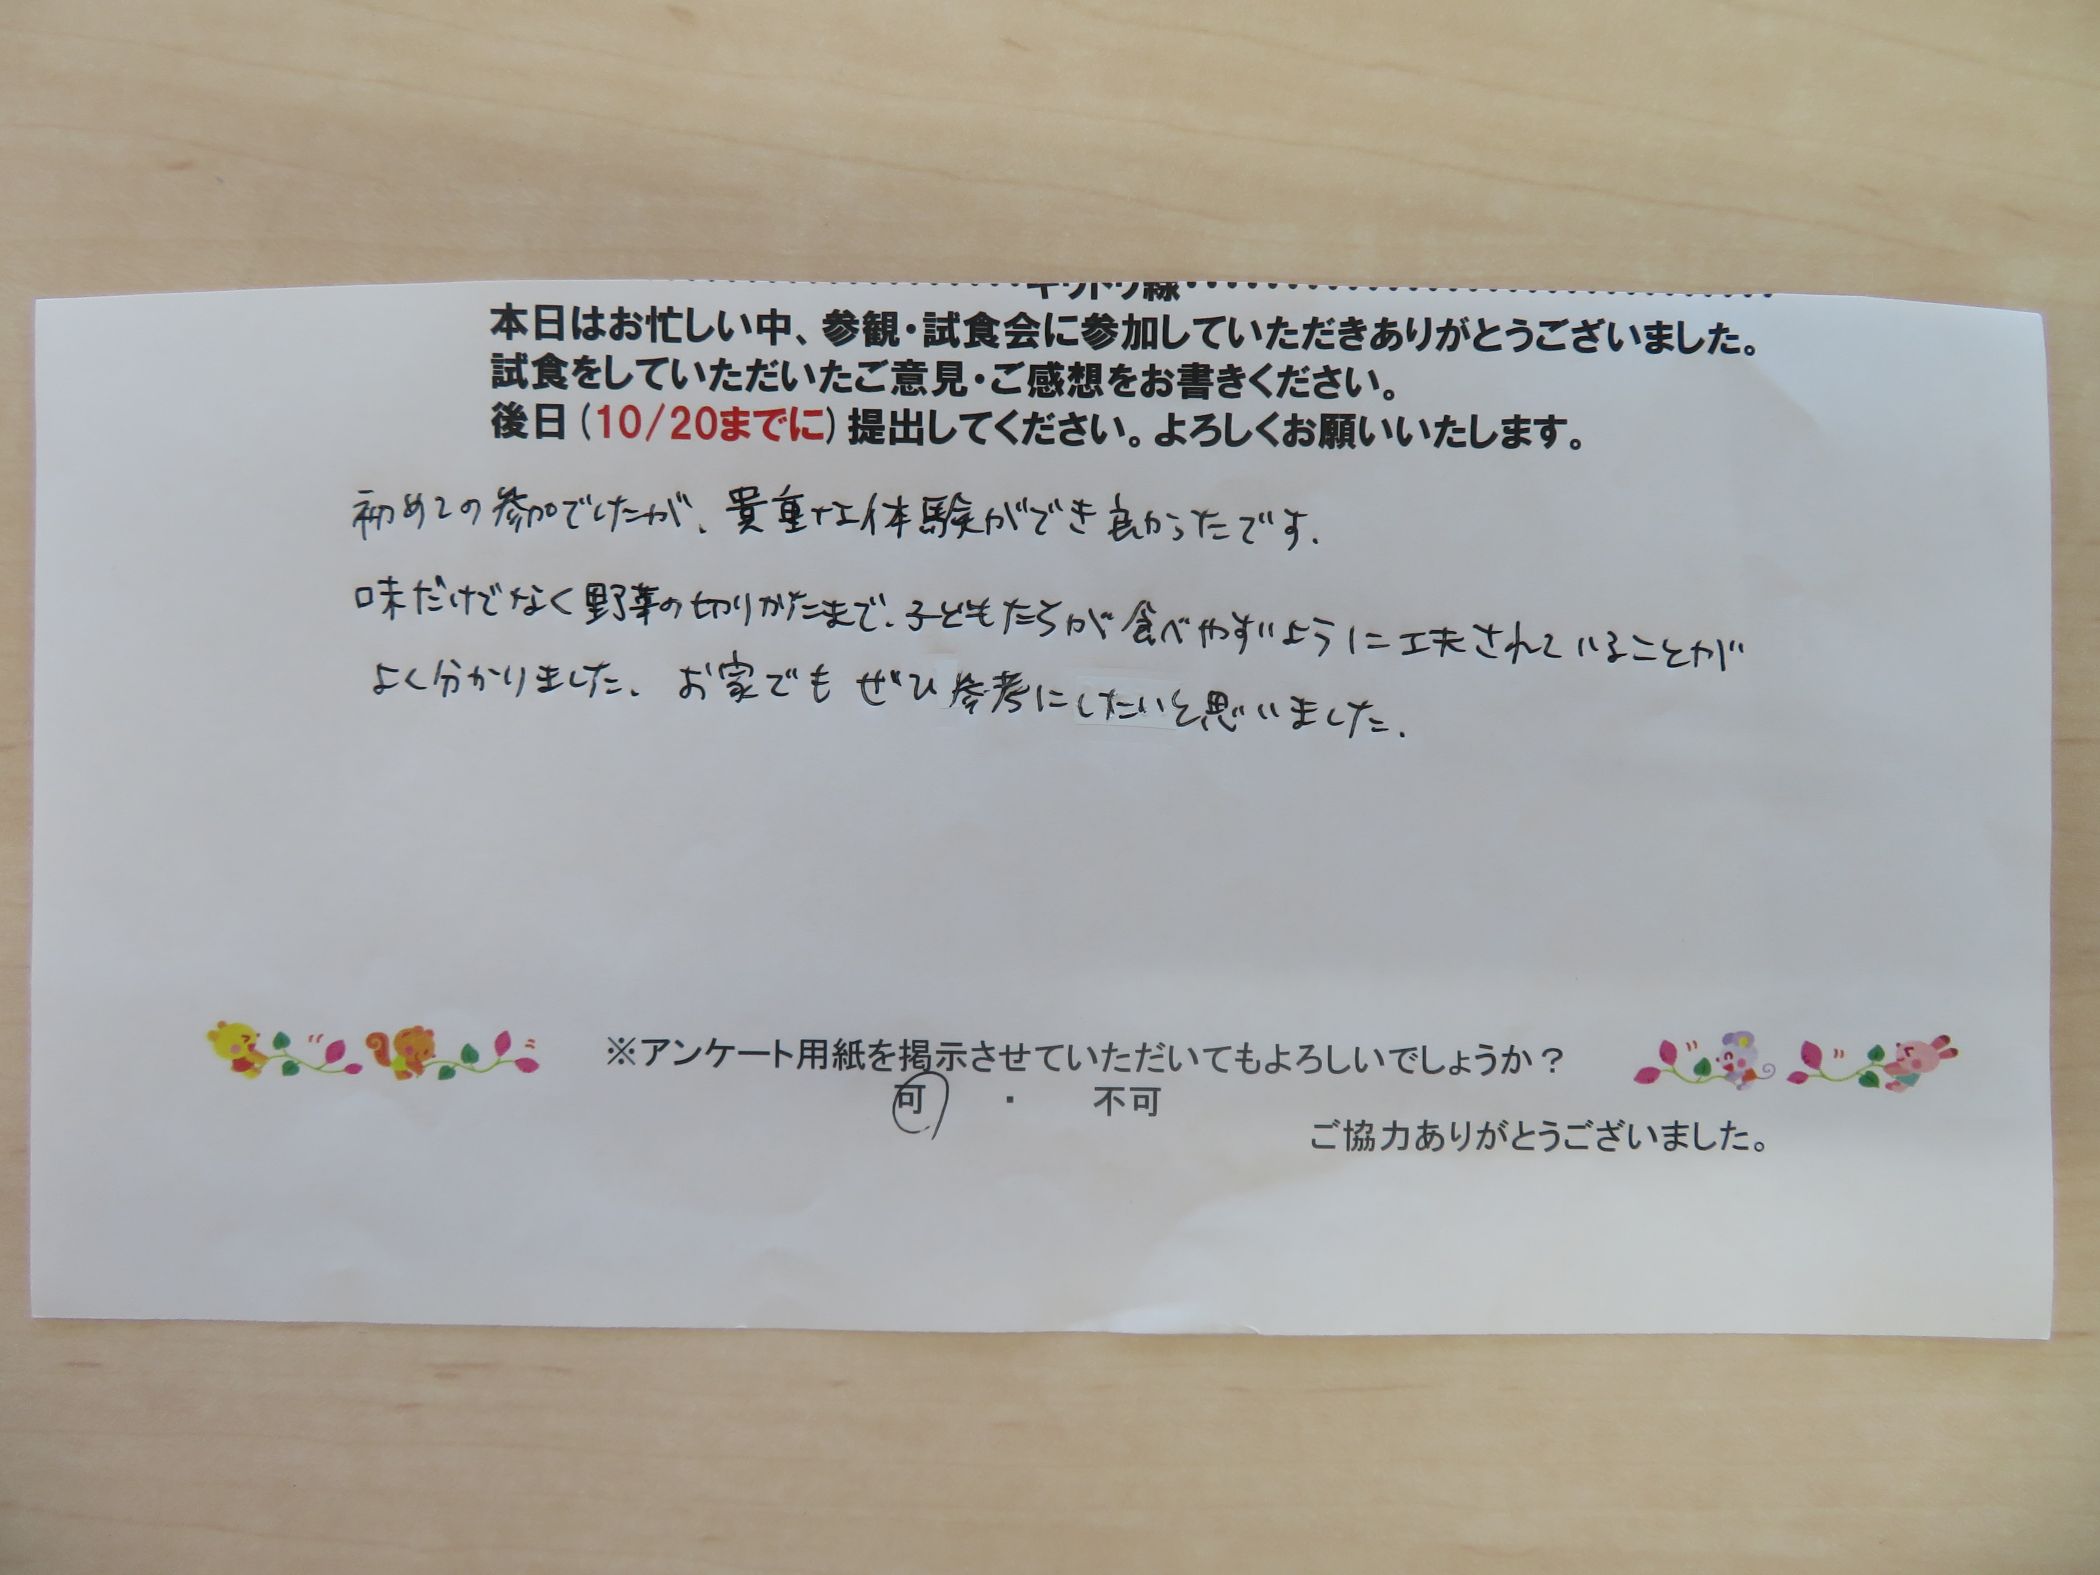 キリトリ線
本日はお忙しい中、参観・試食会に参加していただきありがとうございました。
試食をしていただいたご意見・ご感想をお書きください。
後日(10/20までに)提出してください。よろしくお願いいたします。
初めての参加でしたが、貴重な体験ができ良かったです.
味だけでなく野菜の切りかたまで、子どもたちが食べやすいように工夫されていることが
よく分かりました. お家でもぜひ参考にしたいと思いました.
※アンケート用紙を掲示させていただいてもよろしいでしょうか？
可 ・ 不可
ご協力ありがとうございました。